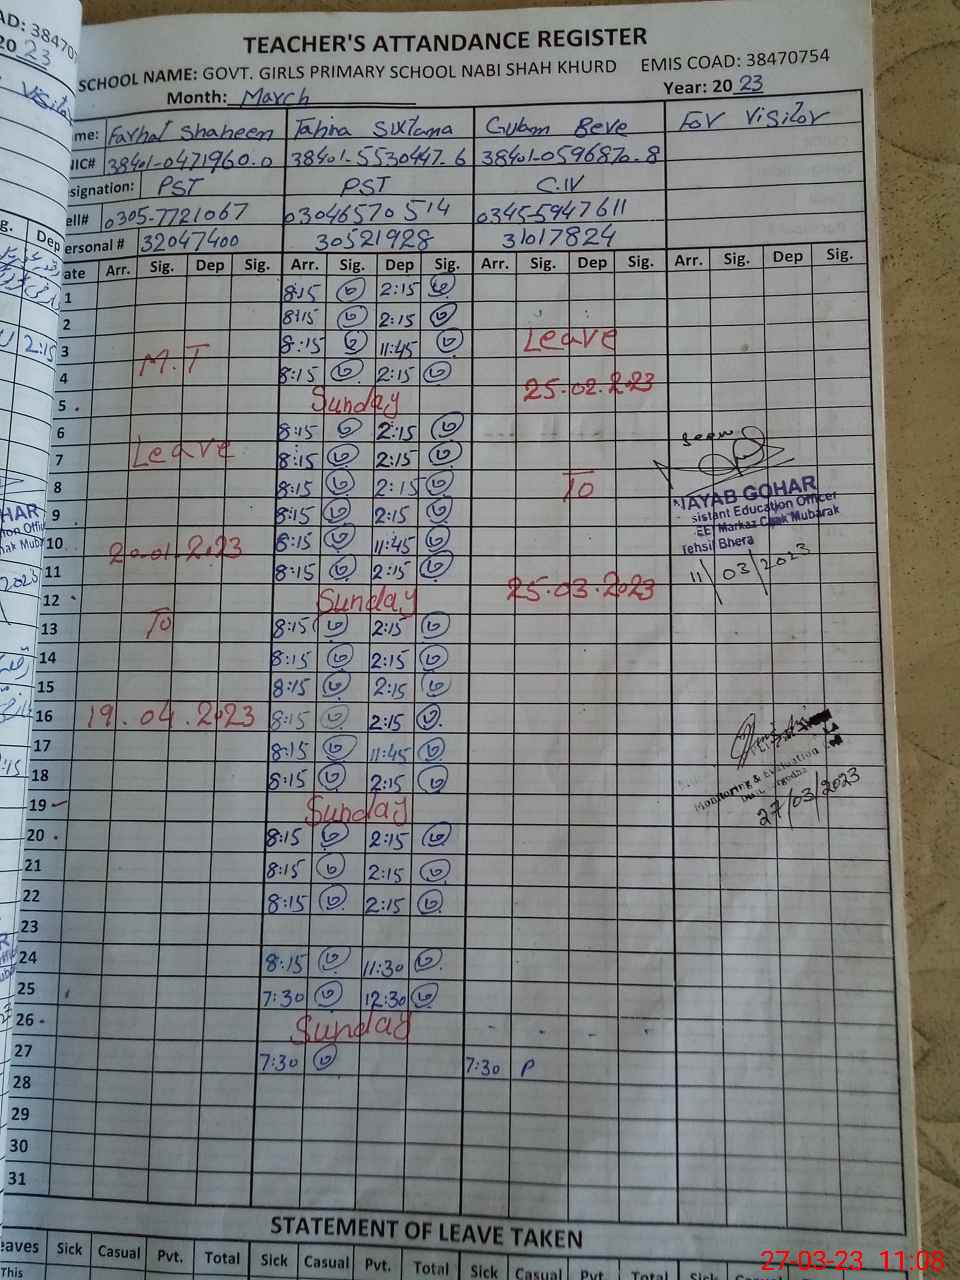 AD: 38470
20 23
TEACHER'S ATTANDANCE REGISTER
SCHOOL NAME: GOVT. GIRLS PRIMARY SCHOOL NABI SHAH KHURD EMIS COAD: 38470754
Month: March Year: 20 23
ame: Farhat Shaheen Tahira Sultana For Visitor
NIC# 38401-0471960-0 38401-5530447-6 38401-0596870-8
signation: PST PST C.IV
ell# 0305-7721067 03046570514 0345-5947611
ersonal # 32047400 30521928 31017824
ate Arr. Sig. Dep Sig. Arr. Sig. Dep Sig. Arr. Sig. Dep Sig. Arr. Sig. Dep Sig.
1 8:15 2:15
2 8:15 2:15
3 8:15 11:45 Leave
4 M.T 8:15 2:15 25.02.2023
5 Sunday
6 8:15 2:15 Seen
7 Leave 8:15 2:15
8 8:15 2:15 To
NAYAB GOHAR
9 8:15 2:15 sistant Education Officer
EE) Markaz Chak Mubarak
10 20.01.2023 8:15 11:45 Tehsil Bhera
11 8:15 2:15 11/03/2023
12 Sunday 25.03.2023
13 To 8:15 2:15
14 8:15 2:15
15 8:15 2:15
16 19.04.2023 8:15 2:15
17 8:15 11:45
18 8:15 2:15 Monitoring & Evaluation
19 Sunday 27/03/2023
20 8:15 2:15
21 8:15 2:15
22 8:15 2:15
23
24 8:15 11:30
25 7:30 12:30
26 Sunday
27 7:30 7:30 P
28
29
30
31
STATEMENT OF LEAVE TAKEN
eaves Sick Casual Pvt. Total Sick Casual Pvt. Total Sick Casual Pvt. Total Sick Casual
This
27-03-23 11:08